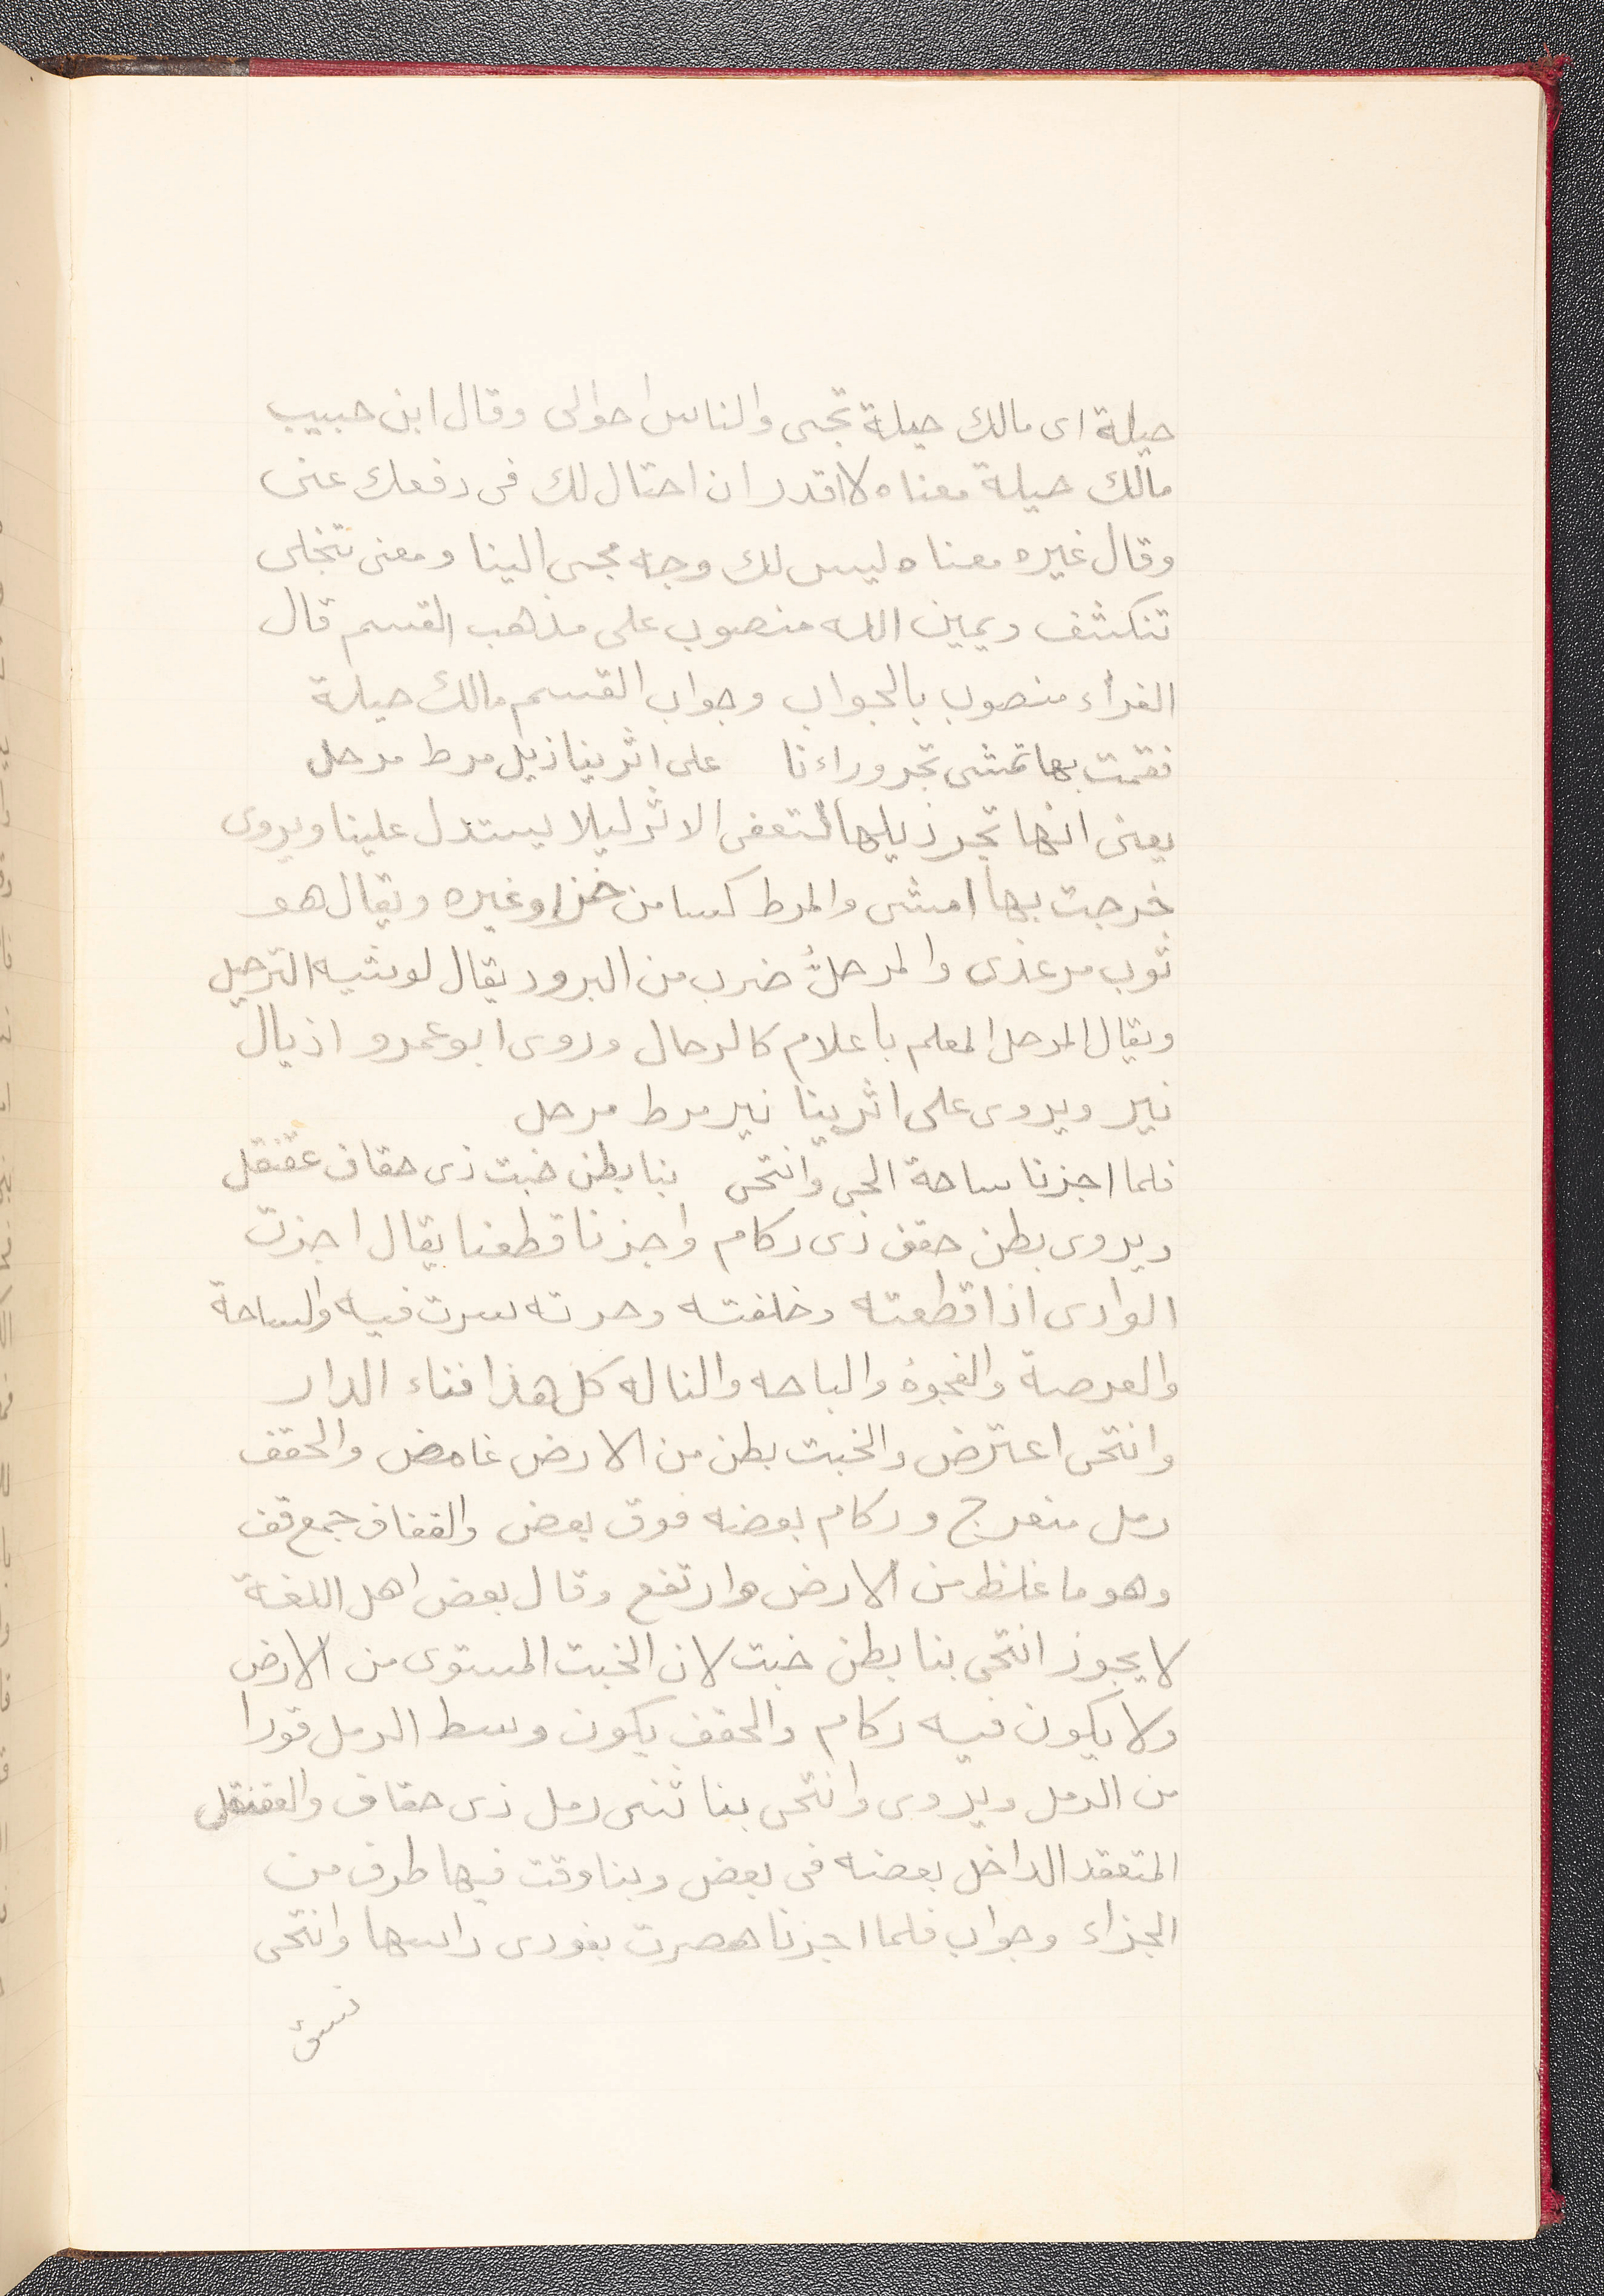 حيلة اى مالك حيلة تجى والناس احوالى وقال ابن حبيب
مالك حيلة معناه لا اقدر ان احتال لك فى دفعك عنى
وقال غيره معناه ليس لك وجه مجى الينا ومعنى تنجلى
تنكشف ويمين الله منصوب على مذهب القسم قال
الفراء منصوب بالجواب وجواب القسم مالك حيلة
فقمت بها تمشى تجر وراءنا على اثرينا ذيل مرط مرحل
يعنى انها تجر ذيلها لتعفى الاثر ليلا يستدل علينا ويروى
خرجت بها امشى والمرط كسا من خز او غيره ويقال هو
ثوب مرعزى والمرحلُ ضرب من البرود يقال لوشيه الترحيل
ويقال المرحل المعلم باعلام كالرحال وروى ابو عمرو اذيال
نير ويروى على اثرينا نير مرط مرحل
فلما اجزنا ساحة الحى وانتحى بنا بطن خبت ذى حقاف عقنقل
ويروى بطن حقف ذى ركام واجزنا قطعنا يقال اجزت
الوادى اذا قطعته وخلفته وحرته سرت فيه والساحة
والعرصة والفجوة والباحه والناله كل هذا فناء الدار
وانتحى اعترض والخبت بطن من الارض غامض والحقف
رمل منعرج وركام بعضه فوق بعض والقفاف جمع قف
وهو ما غلظ من الارض وارتفع وقال بعض اهل اللغة
لا يجوز انتحى بنا بطن خبت لان الخبت المستوى من الارض
ولا يكون فيه ركام والحقف يكون وسط الرمل قورا
من الرمل ويروى وانتحى بنا ثنى رمل ذى حقاف والعقنقل
المتعقد الداخل بعضه فى بعض وبنا وقت فيها طرف من
الجزاء وجواب فلما اجزنا هصرت بفودى راسها وانتحى